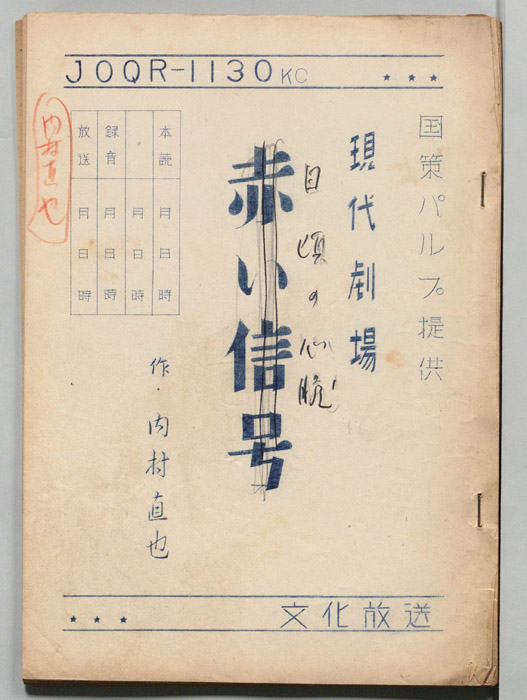 JOQR-1130KC
★ ★ ★
国策パルプ提供
現代劇場
日頃の心脆
赤い信号
作・内村直也
本読 月日時
月日時
録音 月日時
放送 月日時
内村直也
文化放送
★ ★ ★